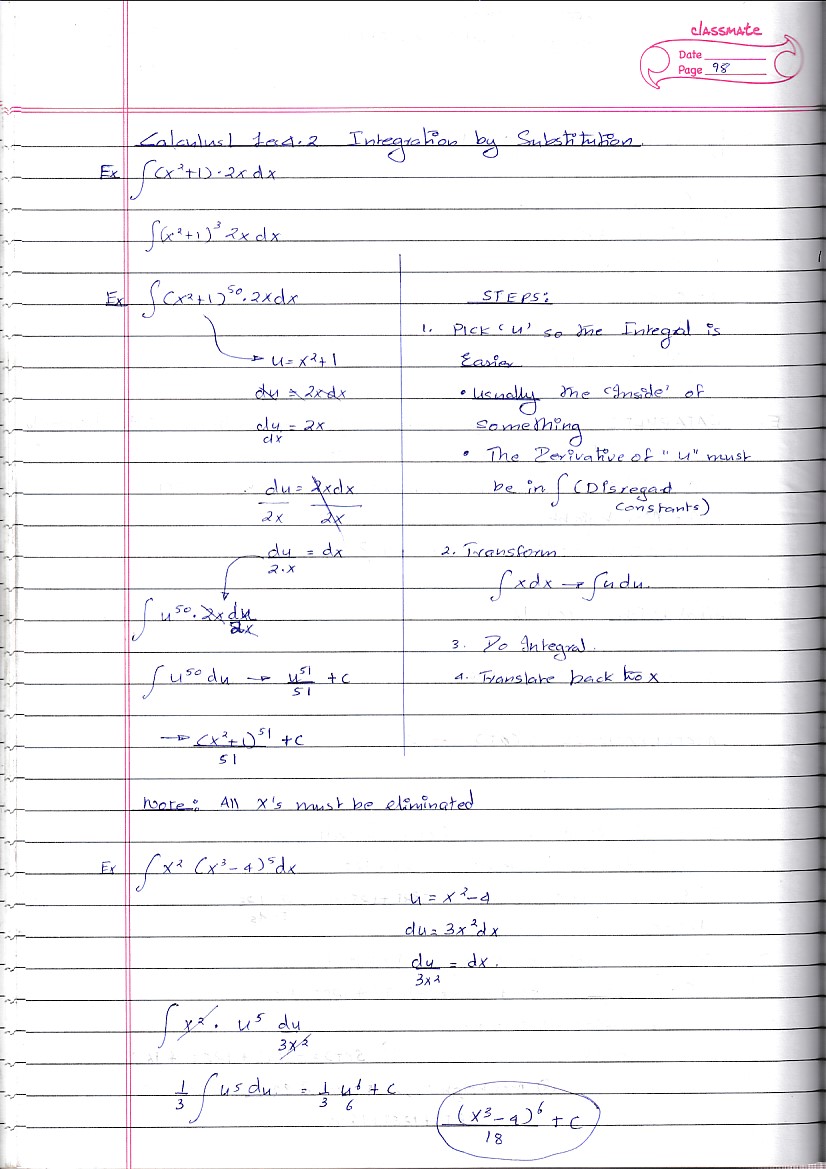 classmate
Date
Page 98
Calculus 1 Lec 4.2 Integration by Substitution.
Ex ∫(x²+1)·2x dx
∫(x²+1)³ 2x dx
Ex ∫(x²+1)⁵⁰·2x dx
u = x²+1
du = 2x dx
du/dx = 2x
du/2x = 2x dx/2x
du/2·x = dx
∫u⁵⁰·2x du/2x
∫u⁵⁰ du → u⁵¹/51 + c
→ (x²+1)⁵¹/51 + c
STEPS:
1. Pick 'u' so the Integral is
Easier
• Usually the 'Inside' of
something
• The Derivative of "u" must
be in ∫ (Disregad
constants)
2. Transform
∫x dx → ∫u du.
3. Do Integral.
4. Translate back to x
Note: All x's must be eliminated
Ex ∫x² (x³-4)⁵ dx
u = x²-4
du = 3x² dx
du/3x² = dx.
∫x² · u⁵ du/3x²
1/3 ∫u⁵ du = 1/3 u⁶/6 + c
(x³-4)⁶/18 + c